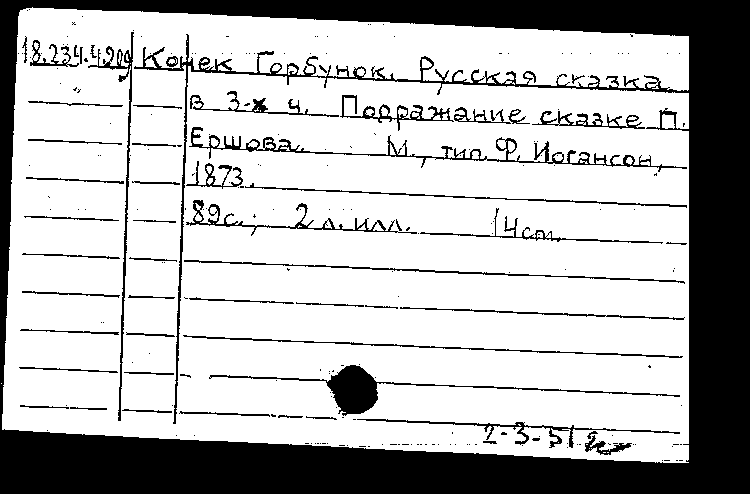 18.234.4.209 Конек Горбунок. Русская сказка
в 3-х ч. Подражание сказке П.
Ершова. М., тип. Ф. Иогансон,
1873.
89 с.; 2 л. илл. 14 см.
2-3-51